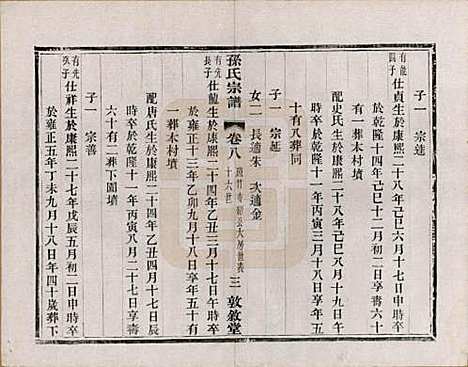 子一　宗達
有能
四子
仕貞生於康熙二十八年己巳六月十七日申時卒
於乾隆十四年己巳十二月十七日享壽六十
有一葬木村墳
配史氏生於康熙二十八年己巳八月十九日午
時卒於乾隆十一年丙寅八月十三日享年五
十有八葬同
子一　宗延
女二　長適朱　次適金
孫氏宗譜　卷八　十六世　三　敦敘堂
有先
長子
仕龍生於康熙二十四年乙丑四月十一日辰時卒
於雍正十三年乙卯九月十八日享年五十有
一葬木村墳
配唐氏生於康熙二十四年乙丑八月二十七日
時卒於乾隆十一年丙寅八月二十七日享壽
六十有二葬下園墳
子一　宗善
有先
次子
仕祥生於康熙二十七年戊辰五月初二日時卒
於雍正五年丁未九月十八日年四十歲葬下